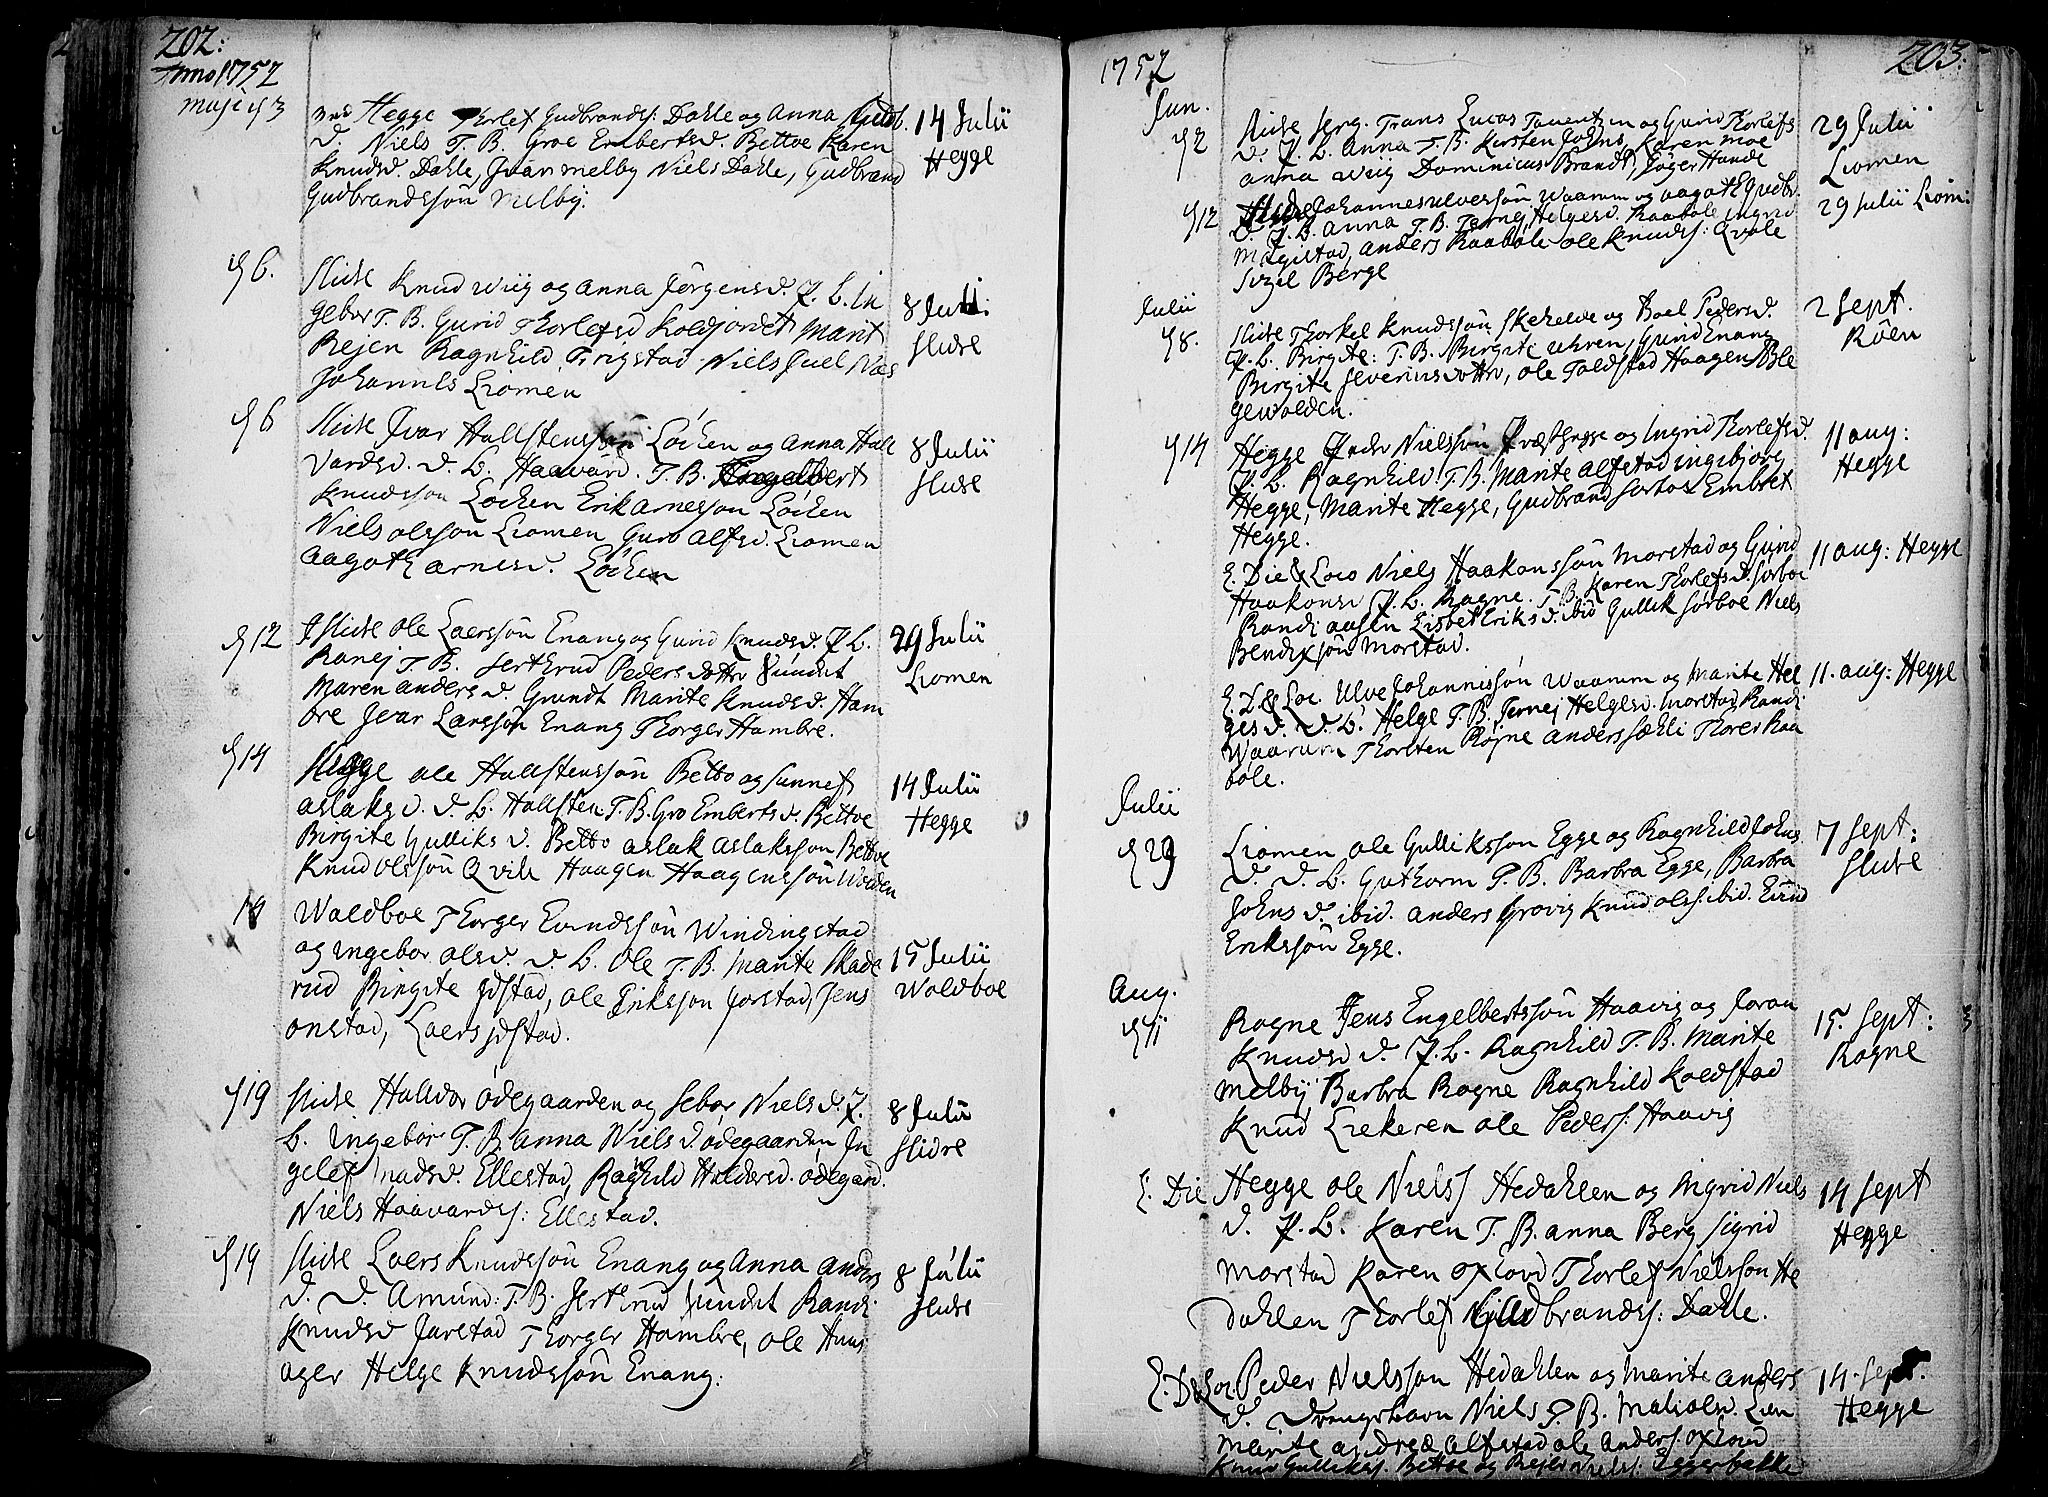 202:
Anno 1752
Maji d 3
Hegge Thorlef Gudbrands: Dahle og Anna Gulb.
d. Niels T. B. Groe Embertsd. Bettoe Karen
Knudsd. Dahle, Ivar Melby Niels Dahle, Gudbrand
Gudbrandssøn Melby.
14 Julii
Hegge
d 6.
Slidre Knud Wiig og Anna Jørgensd. J. L. In
gebor T. B. Gurid Thorlefsd Koldjordet Marit
Rejen Ragnhild Trigstad Niels Juel Næs
Johannes Liomen
8 Julii
Slidre
d 6
Slidre Ivar Hallstenssøn Løcken og Anna Hall
vardsd. d. L. Haavard. T. B. Engelbert
Knudssøn Locken Erik Arnessøn Løcken
Niels Olssøn Liomen Guro Alfsd. Liomen
Aagoth Arnesd. Løcken
8 Julii
Slidre
d 12
Slidre Ole Laerssøn Enang og Gurid Knudsd. J. L.
Ranej T. B. Jerthrud Pedersdottr Sundet
Maren Anders d. Grundt Marite Knudsd. Ham
bre Ivar Larssøn Enang Thorger Hambre.
29 Julii
Liomen
d 14
Hegge Ole Hallstenssøn Betto og Sunnef
Aslaksd. d. L. Hallsten: T. B. Gro Embertsd. Bettoe
Birgite Gulliks d. Betto Aslak Aslakssøn Bettoe
Knud Olssøn Qvile Haagen Haagenssøn Wolden
14 Julii
Hegge
Woldboe Thorger Evindssøn Windingstad
og Ingebor Olsd. d. L. Ole T. B. Marite Skade
rud Birgite Jdstad, Ole Erikssøn Jorstad, Jens
Onstad, Laers Jdstad.
15 Julii
Woldboe
d 19
Slidre Halvor Ødegaarden og Sebor Nielsd. J.
L. Ingebor T. B. Anna Niels d Ødegaarden In
gelef Knudsd. Ellestad, Ragnhild Haldorsd. Ødegaard.
Niels Haavards: Ellestad.
8 Julii
Slidre
d 19
Slidre Laers Knudssøn Enang og Anna Anders
d. d. Amund: T. B. Jerthrud Sundet Randi
Knudsd Jarstad Thorger Hambre, Ole Huus
ager Helge Knudssøn Enang:
8 Julii
Slidre
1752
203:
Jun.
d 2
Slidre Serg. Frans Lucas Tauentzen og Gurid Thorlefs
d. J. L. Anna T. B. Kirsten Johns, Karen Moe
Anna Wiig Dominicus Brandt, Jøger Hande
29 Julii
Liomen
d 12
Slidre Johannes Ulverssøn Waarum og Aagot Gudbr.
d. J. L. Anna T. B. Tarnej Helgesd. Raabøle Ingrid
Migstad, Anders Raabøle Ole Knuds: Qvale
Sizil Berge
29 Julii Liom:
Julii
d 8.
Slidre Thorkel Knudssøn Skehelve og Boel Pedersd.
J. L. Birgite: T. B. Birgite Uhren, Gurid Enang
Birgite Severinsdottr, Ole Foldstad Haagen Ble
gewolden.
2 Sept.
Röen
d 14
Hegge Peder Nielssøn Præsthegge og Ingrid Thorlefsd.
J. L. Ragnhild T. B. Marite Alfstad Ingebjorg
Hegge, Marite Hegge, Gudbrand Sorboe Embret
Hegge.
11 Aug:
Hegge
E. Die & Loco Niels Haakonssøn Morstad og Gurid
Haakonsd J. L. Ragne. T. B. Karen Thorlefsd. Sorboe
Randi Aasen Lisbet Eriks d. ibid Gullik Sørboe Niels
Bendixsøn Morstad.
11 Aug: Hegge
E. D & Loc. Ulve Johannissøn Waarum og Marite Hel
gesd. d. L. Helge T. B. Ternej Helgesd. Morstad Randi
Waarum Thorsten Rogne Anders Sækli Thorer Raa
bøle.
11. Aug: Hegge
Julii
d 29
Liomen Ole Gullikssøn Egge og Ragnhild Johns
d. d. L. Guthorm T. B. Barbra Egge, Barbra
Johns d. ibid. Anders Grovig Knud Ols: ibid. Eivind
Erikssøn Egge.
7 Sept:
Slidre
Aug.
d 11
Rogne Jens Engelbertssøn Haavig og Joran
Knudsd d. J. L. Ragnhild T. B. Marite
Melby Barbra Rogne Ragnhild Koldstad
Knud Liekeren Ole Peders: Haavig
15. Sept:
Rogne
E. Die
Hegge Ole Niels Hedahlen og Ingrid Niels
d. J. L. Karen T. B. Anna Berg Sigrid
Morstad Karen Oxhovd Thorlef Nielsson He
dahlen Thorlef Gudbrands: Dahle.
14 Sept
Hegge
E. D & Loc Peder Nielsson Hedahlen og Marite Anders
d. Drengebarn Niels T. B. Mali Olsd. Lien
Marite Andreæ Alfstad Ole Anders: Oxhovd
Knud Gulliks: Bettoe og Rejer Niels: Eggerbakke
14. Sept.
Hegge